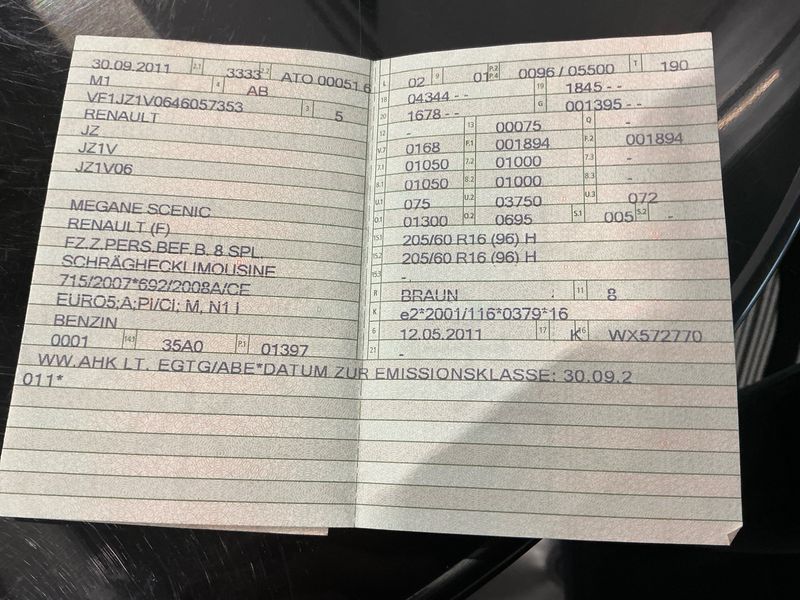 30.09.2011 2.1 3333 2.2 ATO 00051 6
M1 4 AB
VF1JZ1V0646057353 3 5
RENAULT
JZ
JZ1V
JZ1V06
MEGANE SCENIC
RENAULT (F)
FZ.Z.PERS.BEF.B. 8 SPL.
SCHRÄGHECKLIMOUSINE
715/2007*692/2008A/CE
EURO5;A;PI/CI; M, N1 I
BENZIN
0001 14.1 35A0 P.1 01397
L 02 9 01 P.2 P.4 0096 / 05500 T 190
18 04344 - - 19 1845 - -
20 1678 - - G 001395 - -
12 - 13 00075 Q -
V.7 0168 F.1 001894 F.2 001894
7.1 01050 7.2 01000 7.3 -
8.1 01050 8.2 01000 8.3 -
U.1 075 U.2 03750 U.3 072
O.1 01300 O.2 0695 S.1 005 S.2 -
15.1 205/60 R16 (96) H
15.2 205/60 R16 (96) H
15.3 -
R BRAUN 11 8
K e2*2001/116*0379*16
6 12.05.2011 17 K 16 WX572770
21 -
WW.AHK LT. EGTG/ABE*DATUM ZUR EMISSIONSKLASSE: 30.09.2
011*